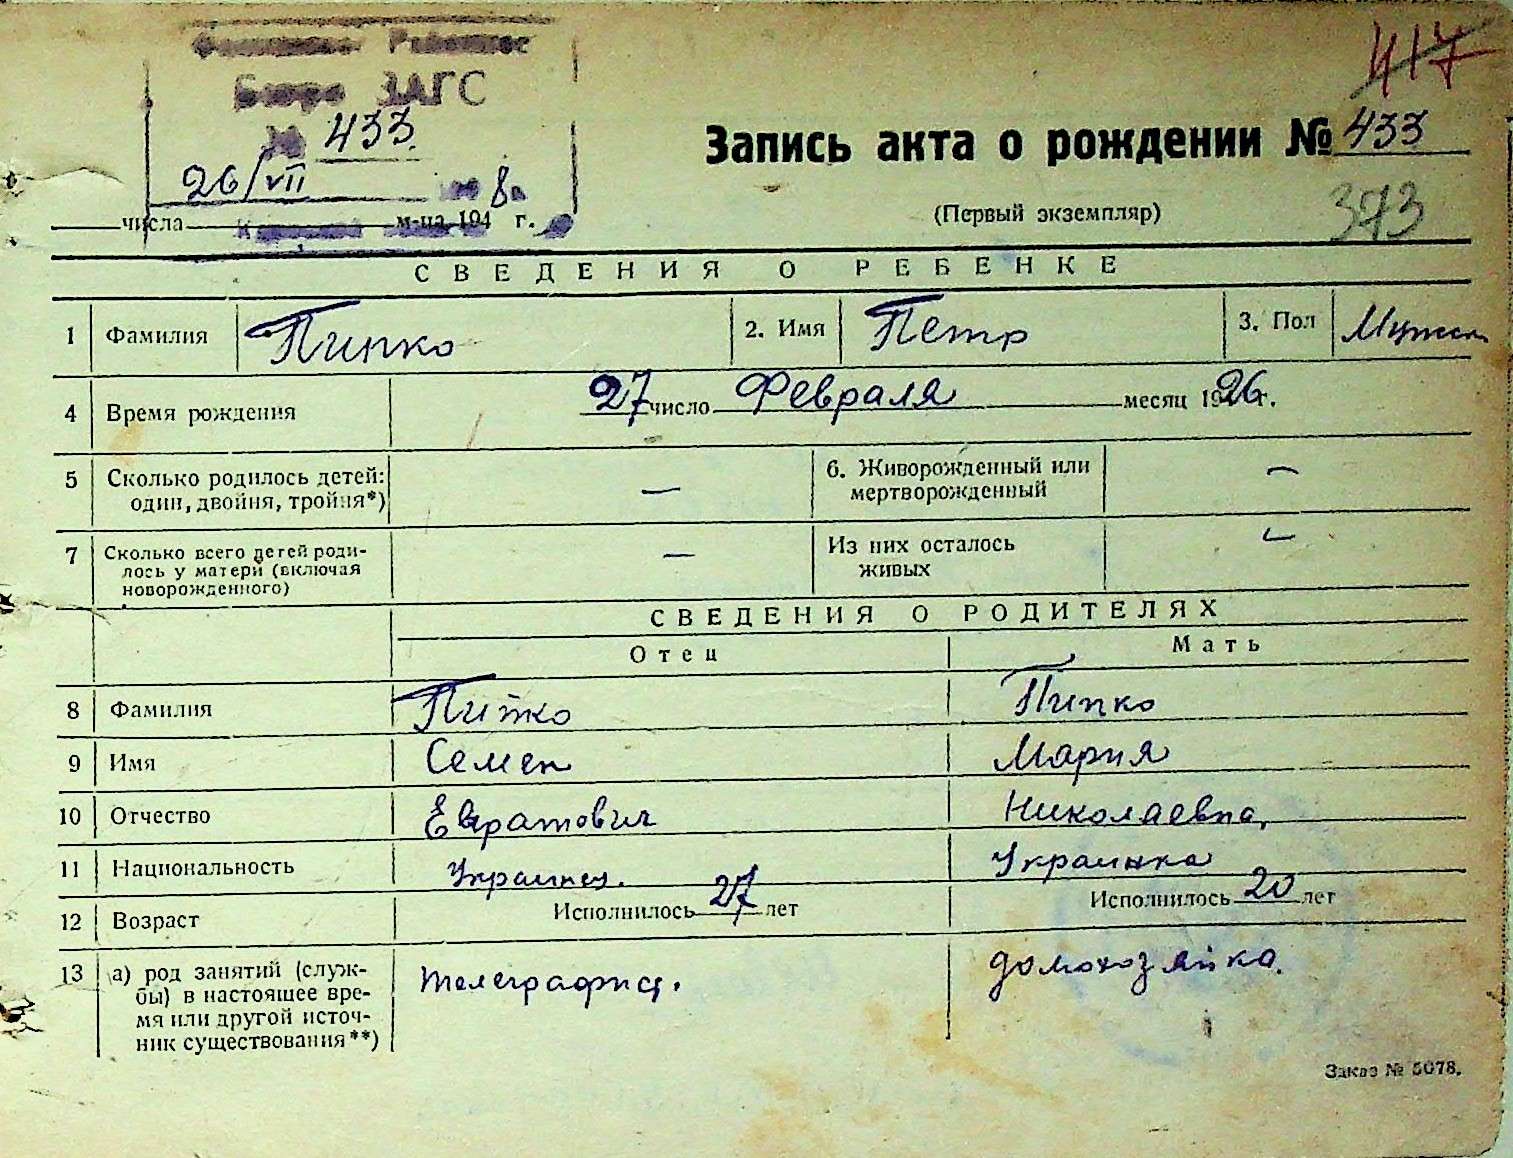 Бюро ЗАГС
№ 433.
26/VII 8
числа м-ца 194 г.
417
Запись акта о рождении № 433
(Первый экземпляр)
373
СВЕДЕНИЯ О РЕБЕНКЕ
1 Фамилия Пипко 2. Имя Петр 3. Пол Мужск
4 Время рождения 27 число Февраля месяц 1926 г.
5 Сколько родилось детей: — 6. Живорожденный или —
один, двойня, тройня*) мертворожденный
7 Сколько всего детей роди- — Из них осталось —
лось у матери (включая живых
новорожденного)
СВЕДЕНИЯ О РОДИТЕЛЯХ
Отец Мать
8 Фамилия Пипко Пипко
9 Имя Семен Мария
10 Отчество Николаевна,
11 Национальность Украинец. Украинка
12 Возраст Исполнилось 27 лет Исполнилось 20 лет
13 а) род занятий (служ- телеграфист. домохозяйка.
бы) в настоящее вре-
мя или другой источ-
ник существования**)
Заказ № 5078.